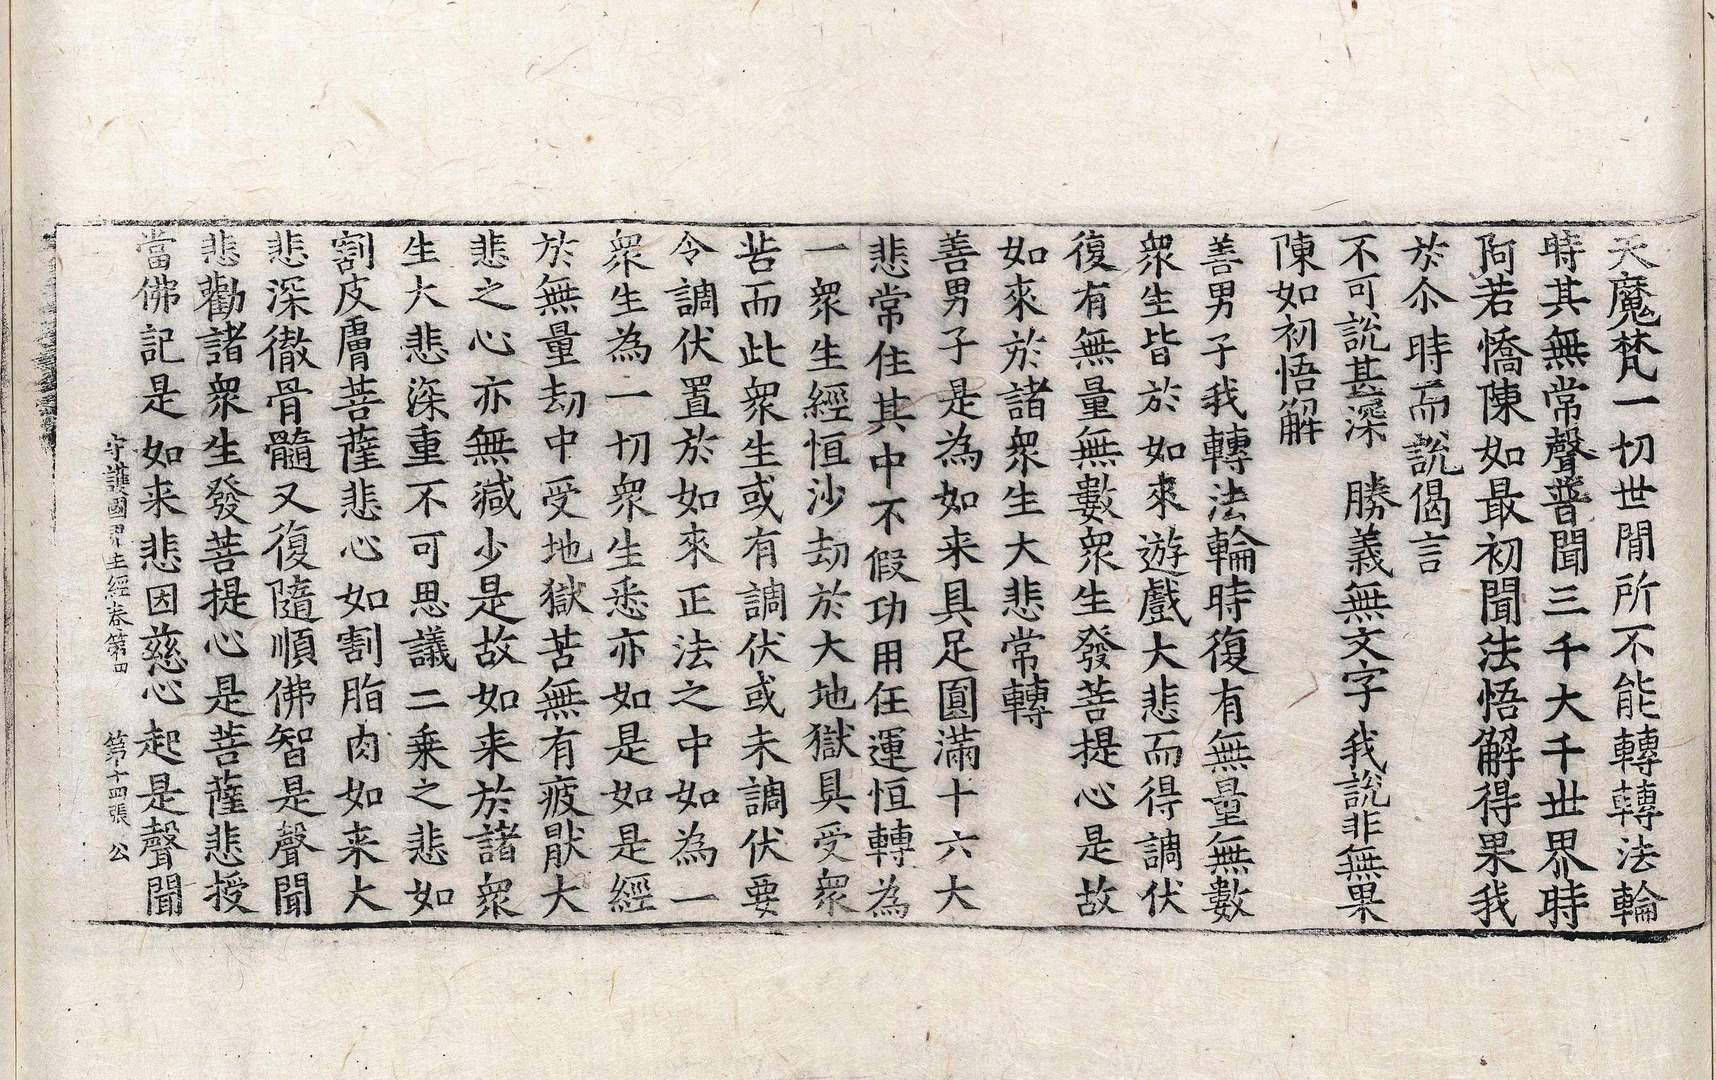 天魔梵一切世間所不能轉轉法輪
時其無常聲普聞三千大千世界時
阿若憍陳如最初聞法悟解得果我
於尒時而說偈言
不可說甚深　勝義無文字　我說非無果
陳如初悟解
善男子我轉法輪時復有無量無數
衆生皆於如來遊戲大悲而得調伏
復有無量無數衆生發菩提心是故
如來於諸衆生大悲常轉
善男子是為如来具足圓滿十六大
悲常住其中不假功用任運恒轉為
一衆生經恒沙劫於大地獄具受衆
苦而此衆生或有調伏或未調伏要
令調伏置於如來正法之中如為一
衆生為一切衆生悉亦如是如是經
於無量劫中受地獄苦無有疲猒大
悲之心亦無減少是故如来於諸衆
生大悲深重不可思議二乘之悲如
割皮膚菩薩悲心如割脂肉如来大
悲深徹骨髓又復隨順佛智是聲聞
悲勸諸衆生發菩提心是菩薩悲授
當佛記是如来悲因慈心起是聲聞
守護國界主經卷第四　第十四張　公